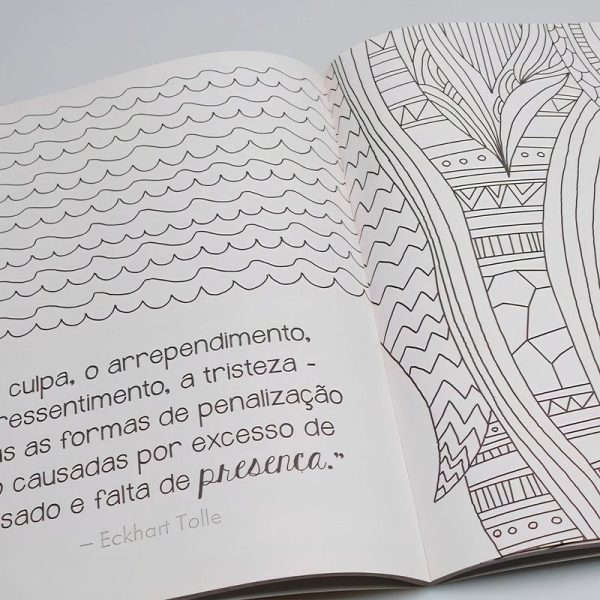 culpa, o arrependimento,
ressentimento, a tristeza -
as formas de penalização
causadas por excesso de
e falta de presença."
– Eckhart Tolle